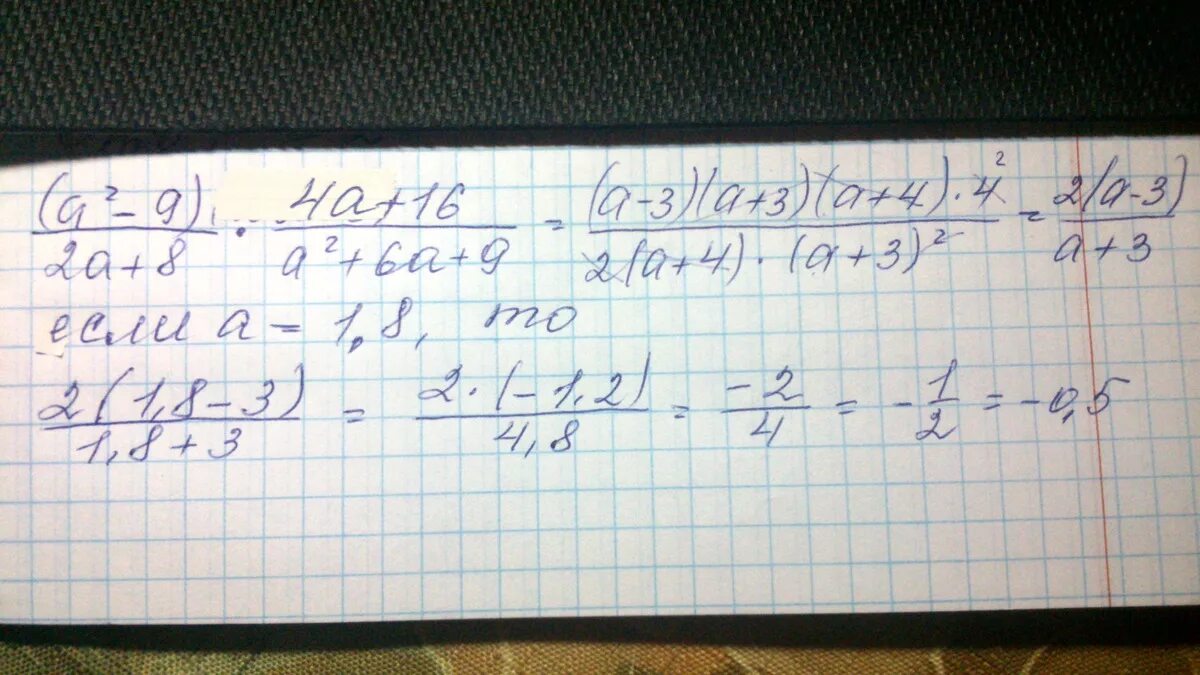 (a² - 9) / (2a + 8) · (4a + 16) / (a² + 6a + 9) = (a - 3)(a + 3)(a + 4) · 4 ² / 2(a + 4) · (a + 3)² = 2(a - 3) / (a + 3)
если a = 1,8, то
2(1,8 - 3) / (1,8 + 3) = 2 · (-1,2) / 4,8 = -2 / 4 = - 1/2 = -0,5